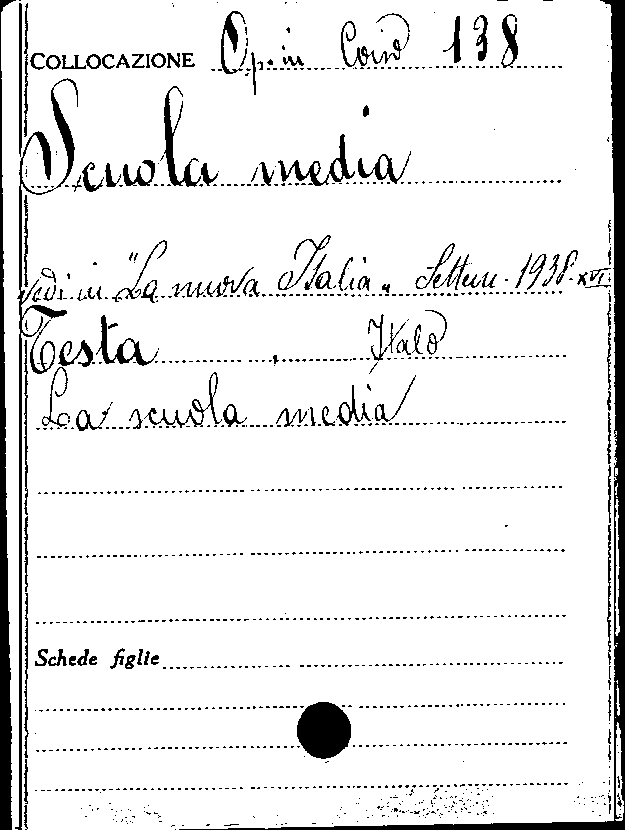 COLLOCAZIONE Op. in Cons 138
Scuola media
vedi in "La nuova Italia" Settem. 1938 XVI
Testa, Italo
La scuola media
Schede figlie